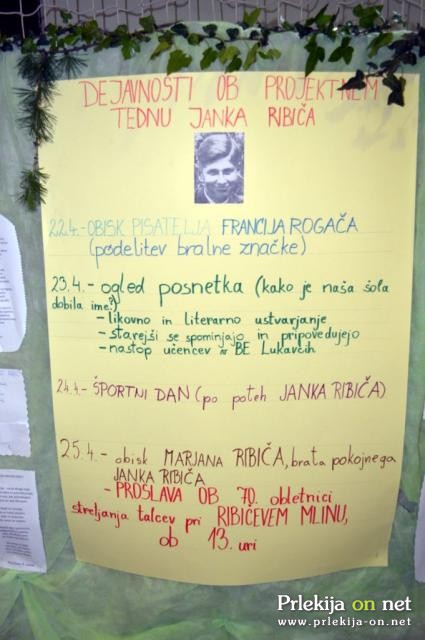 DEJAVNOSTI OB PROJEKTNEM
TEDNU JANKA RIBIČA
22.4.-OBISK PISATELJA FRANCIJA ROGAČA
(podelitev bralne značke)
23.4.- ogled posnetka (kako je naša šola
dobila ime?)
- likovno in literarno ustvarjanje
- starejši se spominjajo in pripovedujejo
- nastop učencev BE Lukavcih
24.4.- ŠPORTNI DAN (po poteh JANKA RIBIČA)
25.4.- obisk MARJANA RIBIČA, brata pokojnega
JANKA RIBIČA
- PROSLAVA OB 70. obletnici
streljanja talcev pri RIBIČEVEM MLINU,
ob 13. uri
Prlekija on net
www.prlekija-on.net